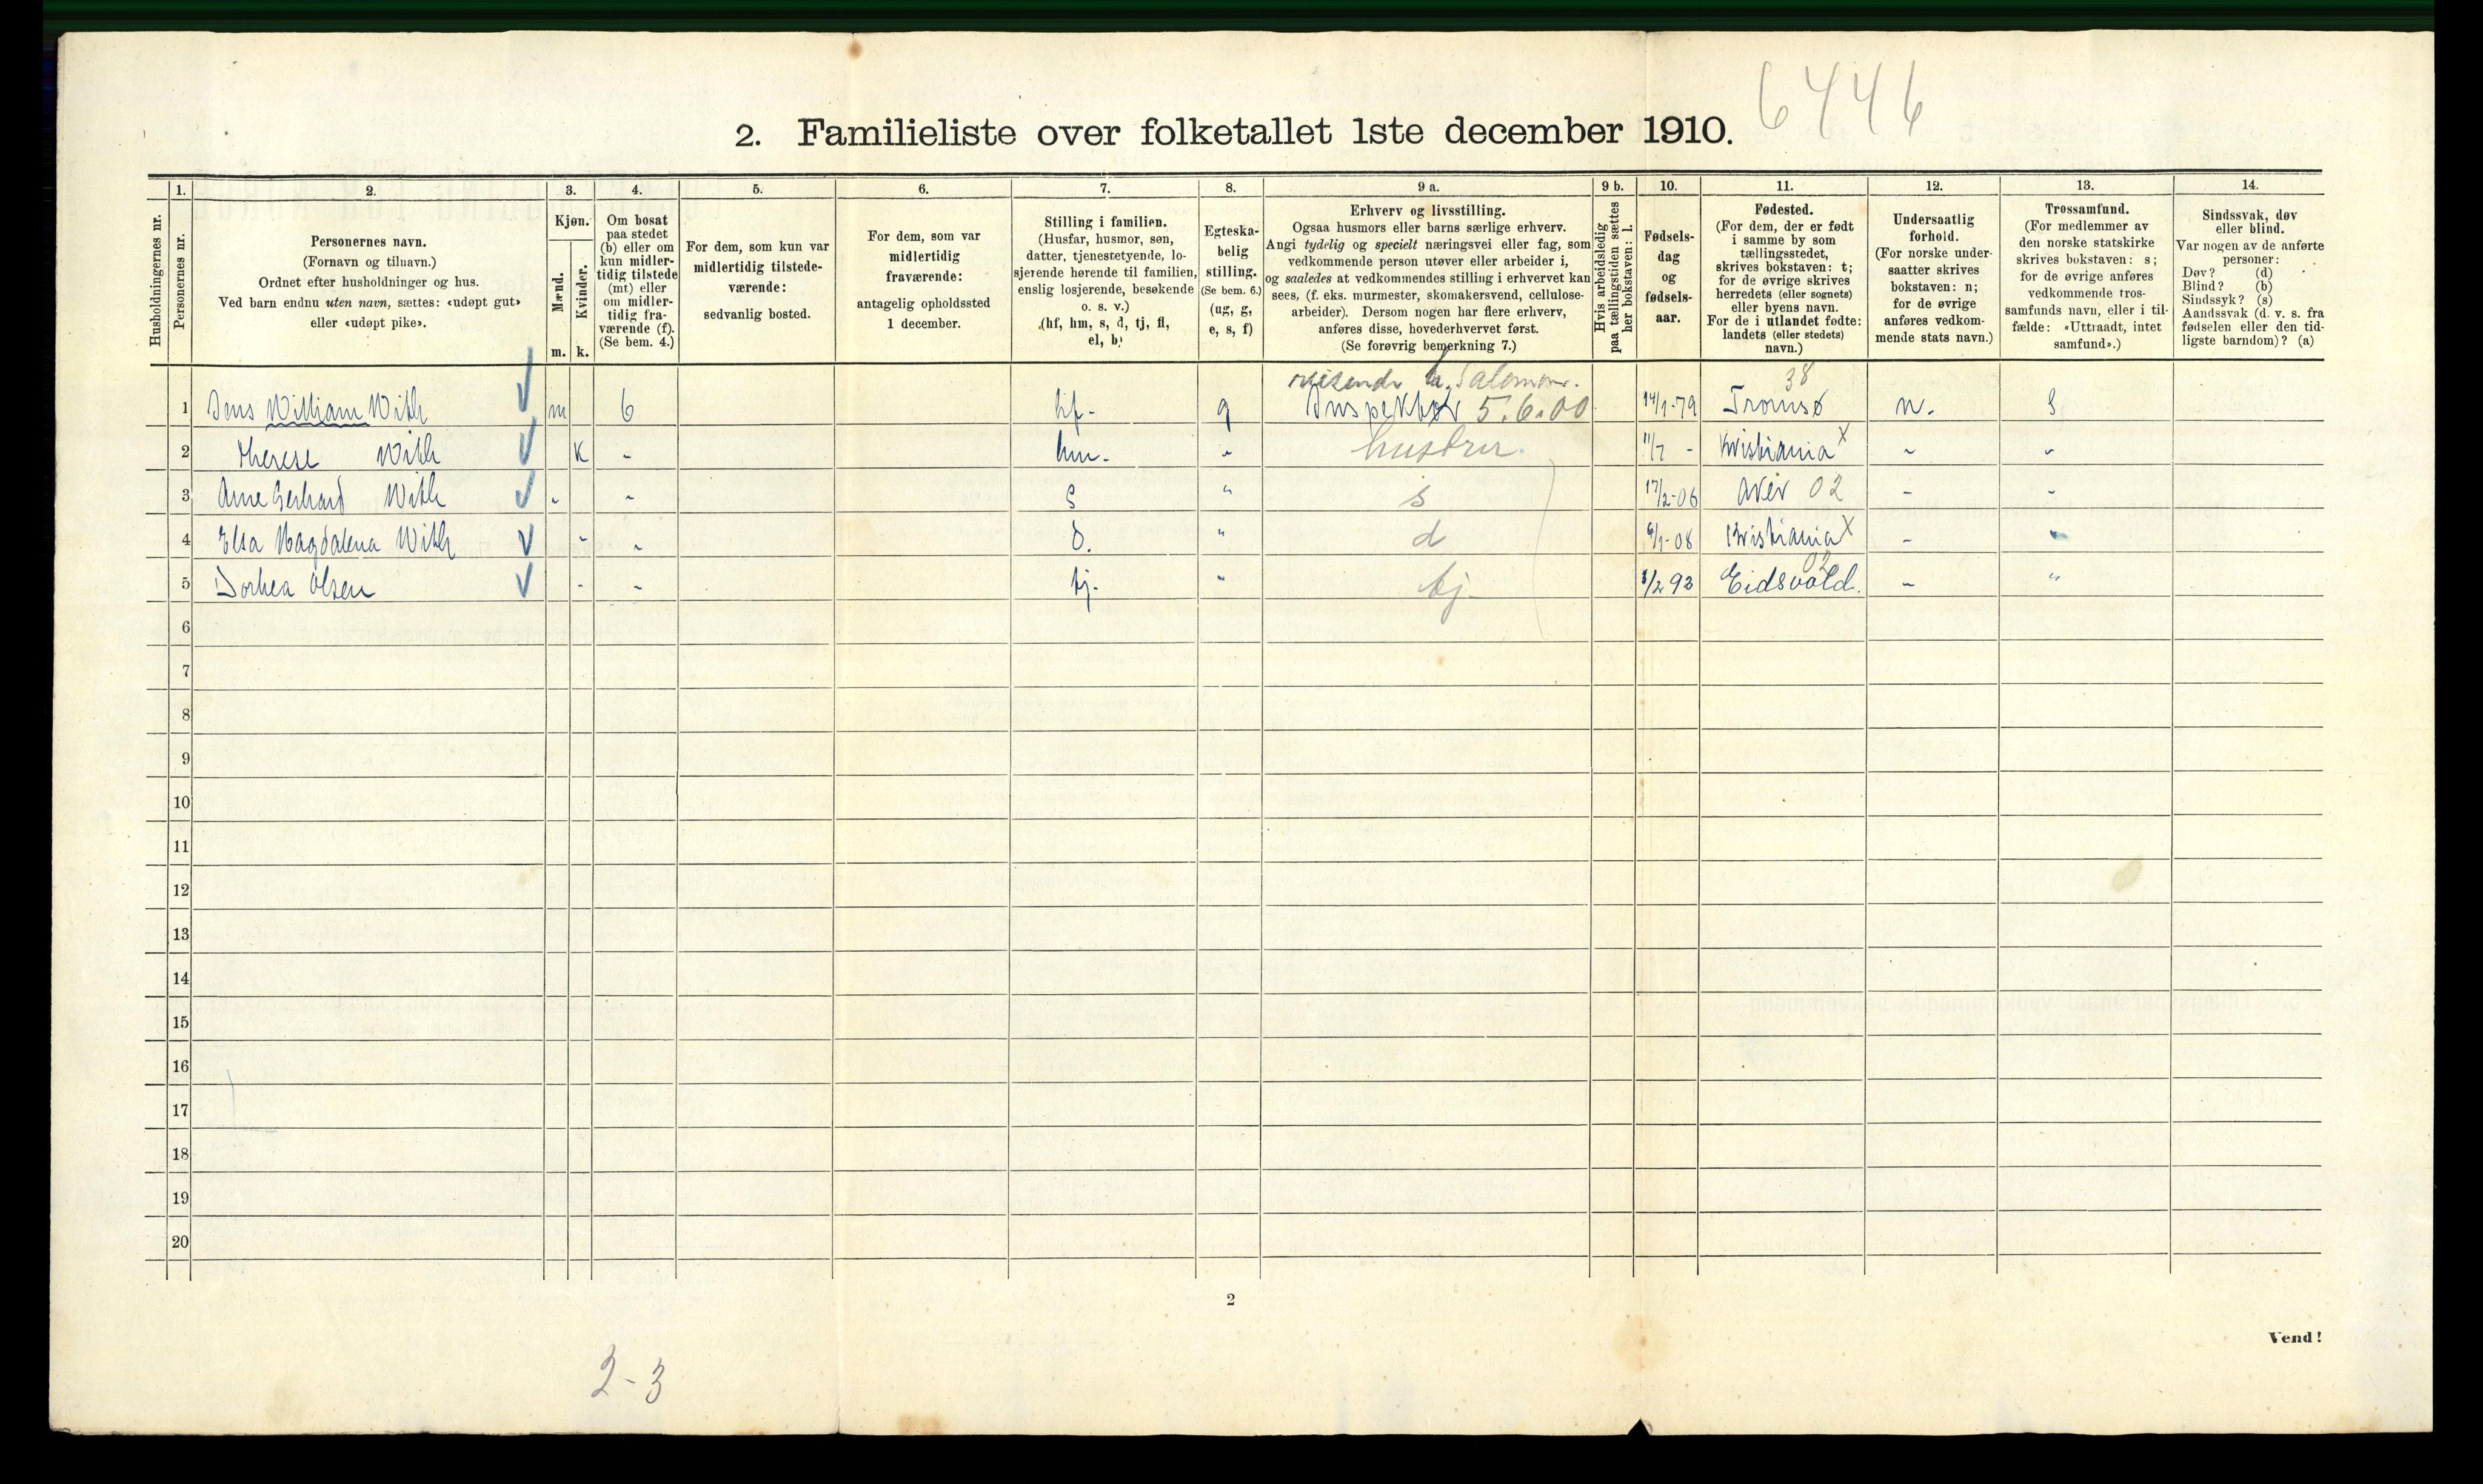 6446
2. Familieliste over folketallet 1ste december 1910.
Husholdningernes nr.
1. Personernes nr.
2. Personernes navn. (Fornavn og tilnavn.) Ordnet efter husholdninger og hus. Ved barn endnu uten navn, sættes: «udøpt gut» eller «udøpt pike».
3. Kjøn. Mænd. m. Kvinder. k.
4. Om bosat paa stedet (b) eller om kun midlertidig tilstede (mt) eller om midlertidig fraværende (f). (Se bem. 4.)
5. For dem, som kun var midlertidig tilstedeværende: sedvanlig bosted.
6. For dem, som var midlertidig fraværende: antagelig opholdssted 1 december.
7. Stilling i familien. (Husfar, husmor, søn, datter, tjenestetyende, losjerende hørende til familien, enslig losjerende, besøkende o. s. v.) (hf, hm, s, d, tj, fl, el, b)
8. Egteskabelig stilling. (Se bem. 6.) (ug, g, e, s, f)
9 a. Erhverv og livsstilling. Ogsaa husmors eller barns særlige erhverv. Angi tydelig og specielt næringsvei eller fag, som vedkommende person utøver eller arbeider i, og saaledes at vedkommendes stilling i erhvervet kan sees, (f. eks. murmester, skomakersvend, cellulosearbeider). Dersom nogen har flere erhverv, anføres disse, hovederhvervet først. (Se forøvrig bemerkning 7.)
9 b. Hvis arbeidsledig paa tællingstiden sættes her bokstaven: l.
10. Fødselsdag og fødselsaar.
11. Fødested. (For dem, der er født i samme by som tællingsstedet, skrives bokstaven: t; for de øvrige skrives herredets (eller sognets) eller byens navn. For de i utlandet fødte: landets (eller stedets) navn.)
12. Undersaatlig forhold. (For norske undersaatter skrives bokstaven: n; for de øvrige anføres vedkommende stats navn.)
13. Trossamfund. (For medlemmer av den norske statskirke skrives bokstaven: s; for de øvrige anføres vedkommende trossamfunds navn, eller i tilfælde: «Uttraadt, intet samfund».)
14. Sindssvak, døv eller blind. Var nogen av de anførte personer: Døv? (d) Blind? (b) Sindssyk? (s) Aandssvak (d. v. s. fra fødselen eller den tidligste barndom)? (a)
reisende 38
1 Jens William With m b hf. g Inspektør 5.6.00 14/1-79 Tromsø n. s
2 Therese With k " hm. " hustru 11/7 - Kristiania X " "
3 Arne Gerhard With " " s " s 17/2-06 Aker 02 " "
4 Elsa Magdalena With " " d. " d 6/1-08 Kristiania X " "
5 Dorthea Olsen " " tj. " tj. 3/2 93 Eidsvold. 02 " "
6
7
8
9
10
11
12
13
14
15
16
17
18
19
20
2
Vend!
2-3